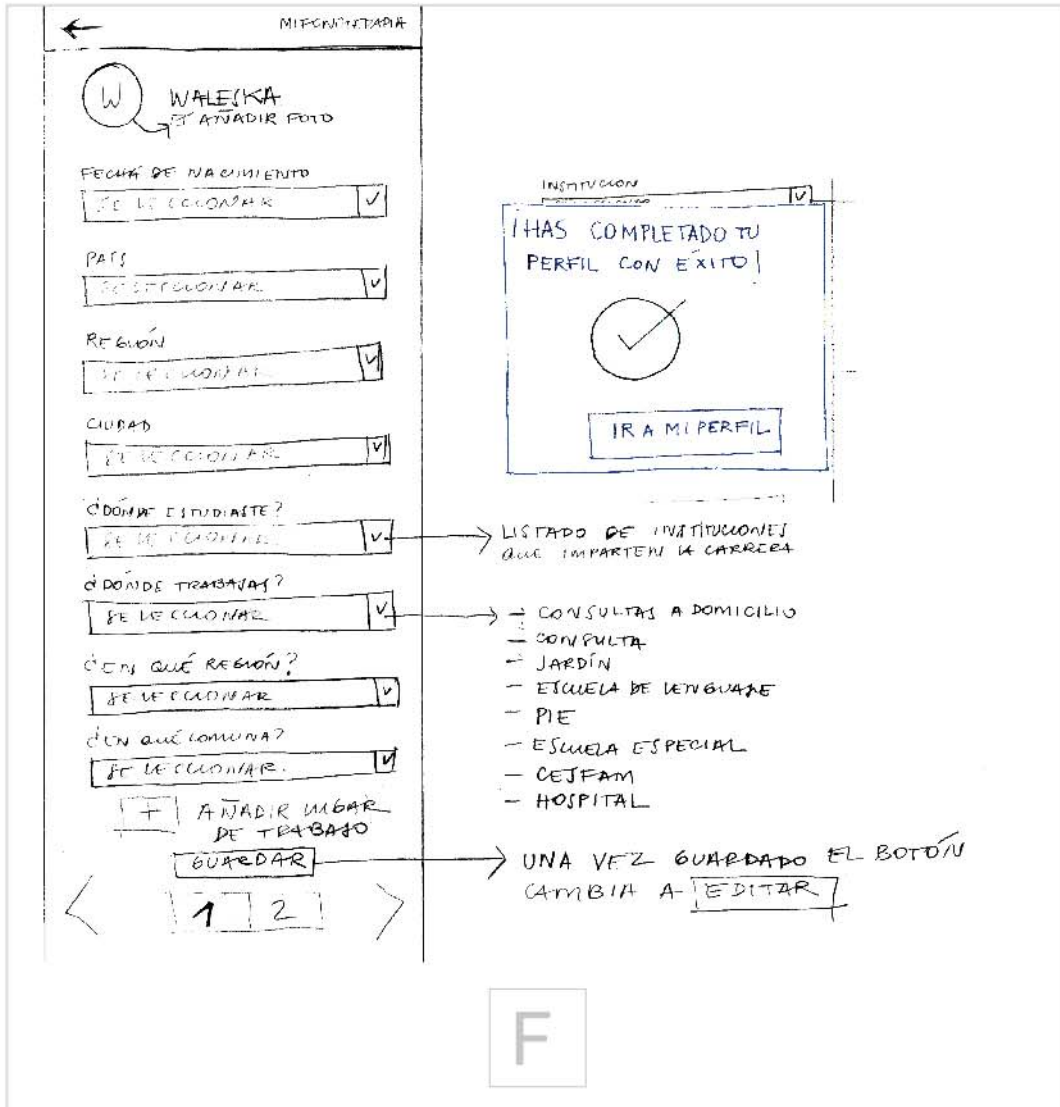 WALESKA
AÑADIR FOTO
FECHA DE NACIMIENTO
SELECCIONAR
PAÍS
SELECCIONAR
REGIÓN
SELECCIONAR
CIUDAD
SELECCIONAR
¿DÓNDE ESTUDIASTE?
SELECCIONAR
¿DÓNDE TRABAJAS?
SELECCIONAR
¿EN QUÉ REGIÓN?
SELECCIONAR
¿EN QUÉ COMUNA?
SELECCIONAR.
+ AÑADIR LUGAR
DE TRABAJO
GUARDAR
< 1 2 >
INSTITUCIÓN
¡HAS COMPLETADO TU
PERFIL CON ÉXITO!
IR A MI PERFIL
LISTADO DE INSTITUCIONES
QUE IMPARTEN LA CARRERA
- CONSULTAS A DOMICILIO
- CONSULTA
- JARDÍN
- ESCUELA DE LENGUAJE
- PIE
- ESCUELA ESPECIAL
- CESFAM
- HOSPITAL
UNA VEZ GUARDADO EL BOTÓN
CAMBIA A EDITAR
F